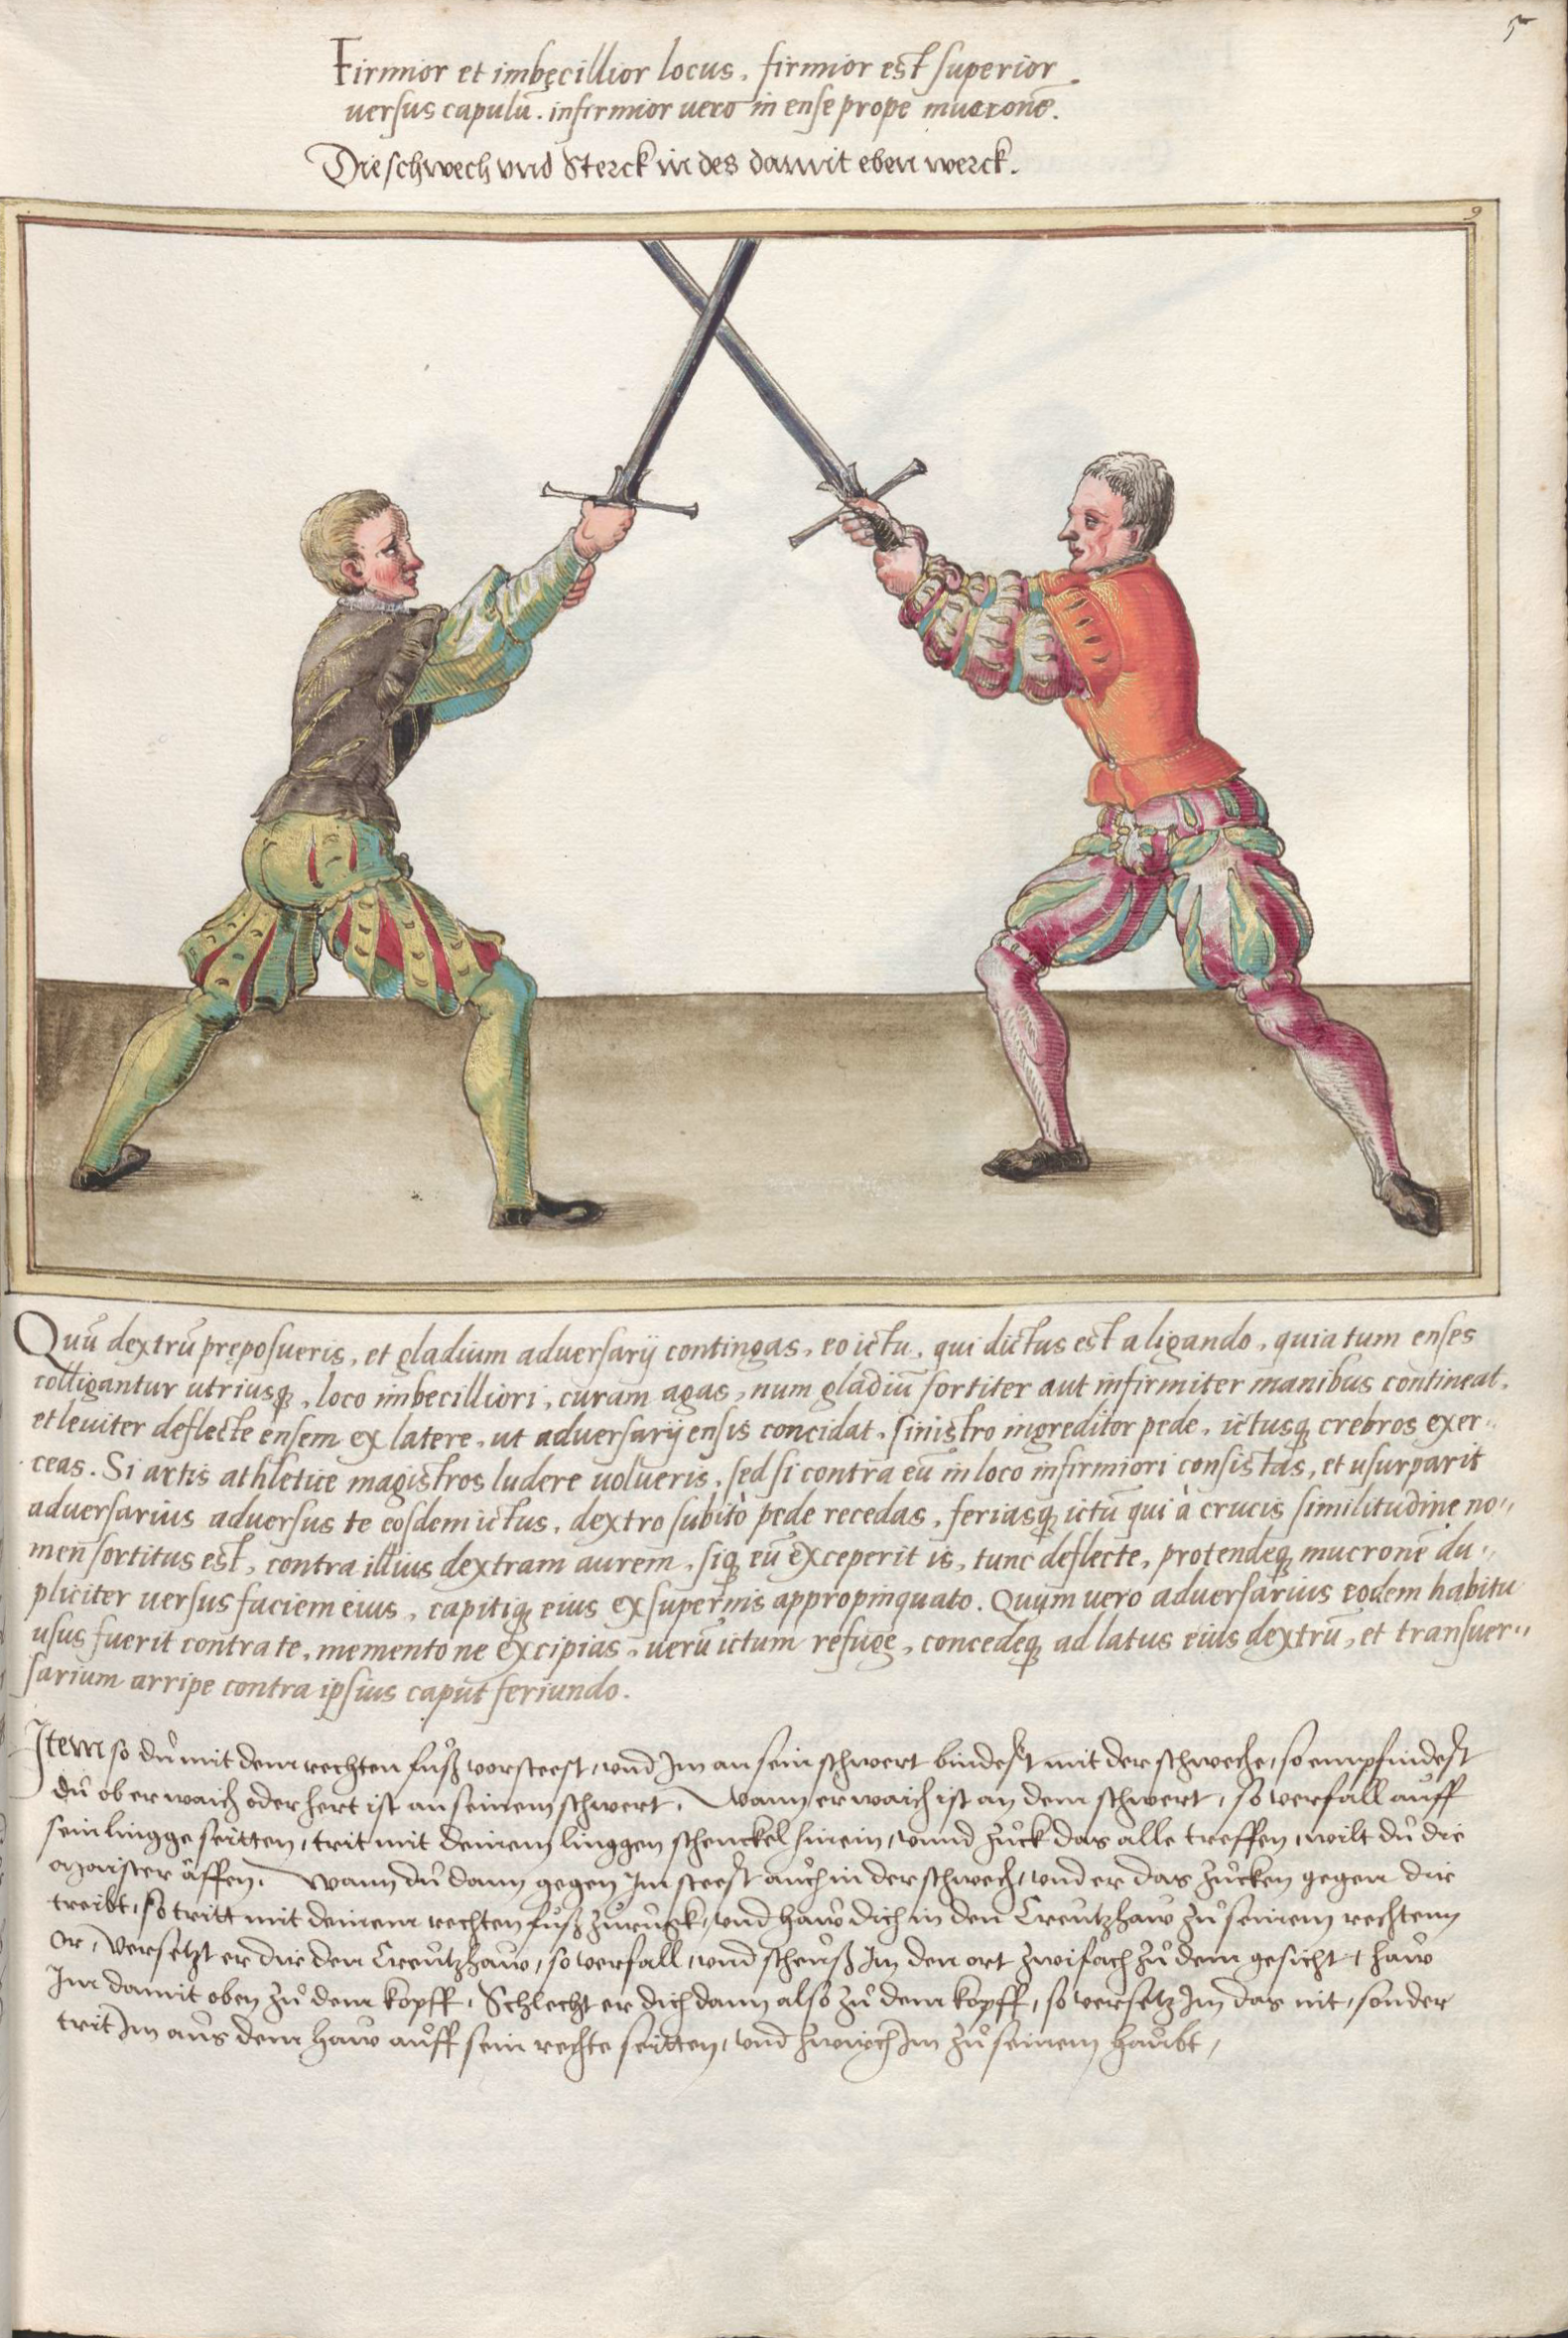 5
Firmior et imbęcillior locus. firmior est superior
versus capulū. infirmior vero in ense prope mucronē.
Die schwech vnd Sterck in des damit eben werck.
9
Quū dextrū pręposueris, et gladium adversarij contingas, eo ictu, qui dictus est a ligando, quia tum enses
colligantur utriusq, loco imbecilliori, curam agas, num gladiū fortiter aut infirmiter manibus contineat,
et leviter deflecte ensem ex latere, ut adversarij ensis concidat, sinistro ingreditor pede, ictusq crebros exer„
ceas. Si artis athleticę magistros ludere volueris, sed si contra eū in loco infirmiori consistas, et usurparit
adversarius adversus te eosdem ictus, dextro subitò pede recedas, feriasq ictū qui à crucis similitudine no„
men sortitus est, contra illius dextram aurem, siq eū exceperit is, tunc deflecte, protendeq mucronē du„
pliciter versus faciem eius, capitiq eius ex supernis appropinquato. Quum vero adversarius eodem habitu
usus fuerit contra te, memento ne excipias, verū ictum refuge, concedeq ad latus eius dextrū, et transver„
sarium arripe contra ipsius caput feriundo.
Item so dů mit dem rechten fůß vorsteest, vnd Jm an sein schwert bindest mit der schweche, so empfindest
dů ob er waich oder hert ist an seinem schwert, Wann er waich ist an dem schwert, so verfall auff
sein lingge seitten, trit mit deinem linggen schenckel hinein, vnnd zůck das alle treffen, wilt dů die
maister äffen. Wann dů dann gegen Jm steest auch in der schwech, vnd er das zůcken gegen dir
treibt, so tritt mit deinem rechten fůß zůrůgk, vnd haw dich in den Creutzhaw zů seinem rechtenn
or, versetzt er dir den Creutzhaw, so verfall, vnd scheuß Jm den ort zwifach zů dem gesicht, haw
Jm damit oben zů dem kopff, Schlecht er dich dann also zů dem kopff, so versetz Jm das nit, sonder
trit Jm aus dem haw auff sein rechte seitten, vnd zwirch Jm zů seinem haubt,